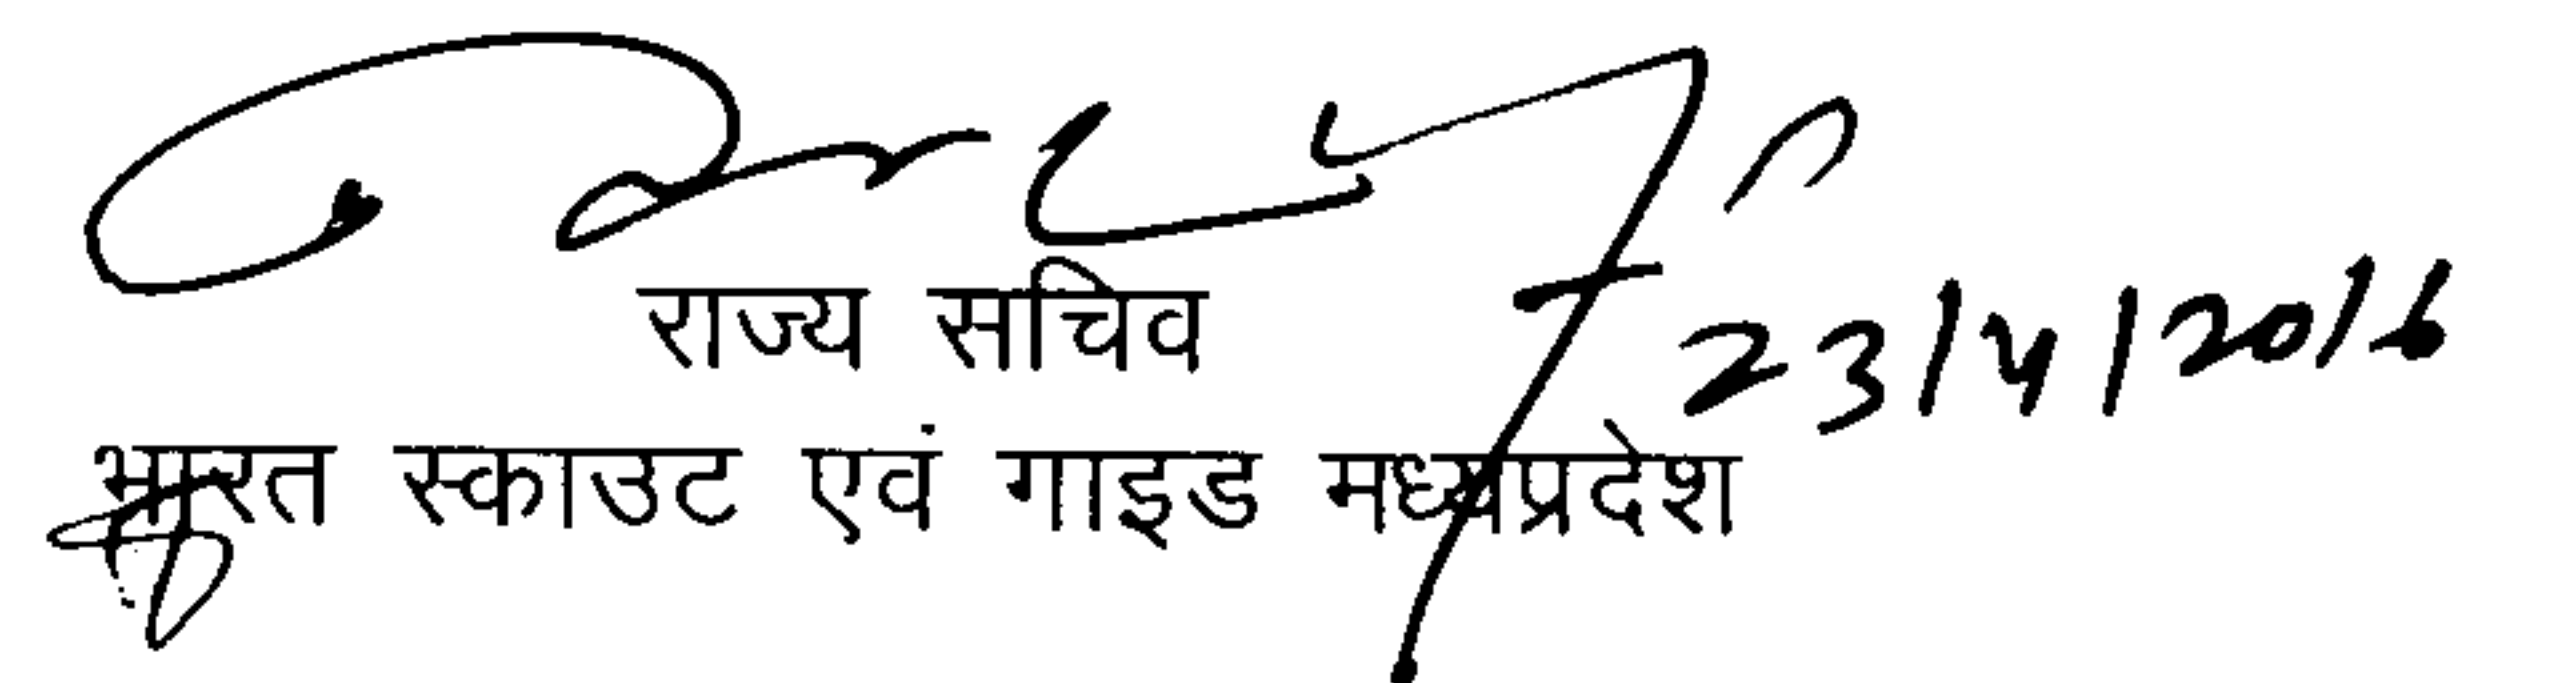 राज्य सचिव
23/4/2016
भारत स्काउट एवं गाइड मध्यप्रदेश